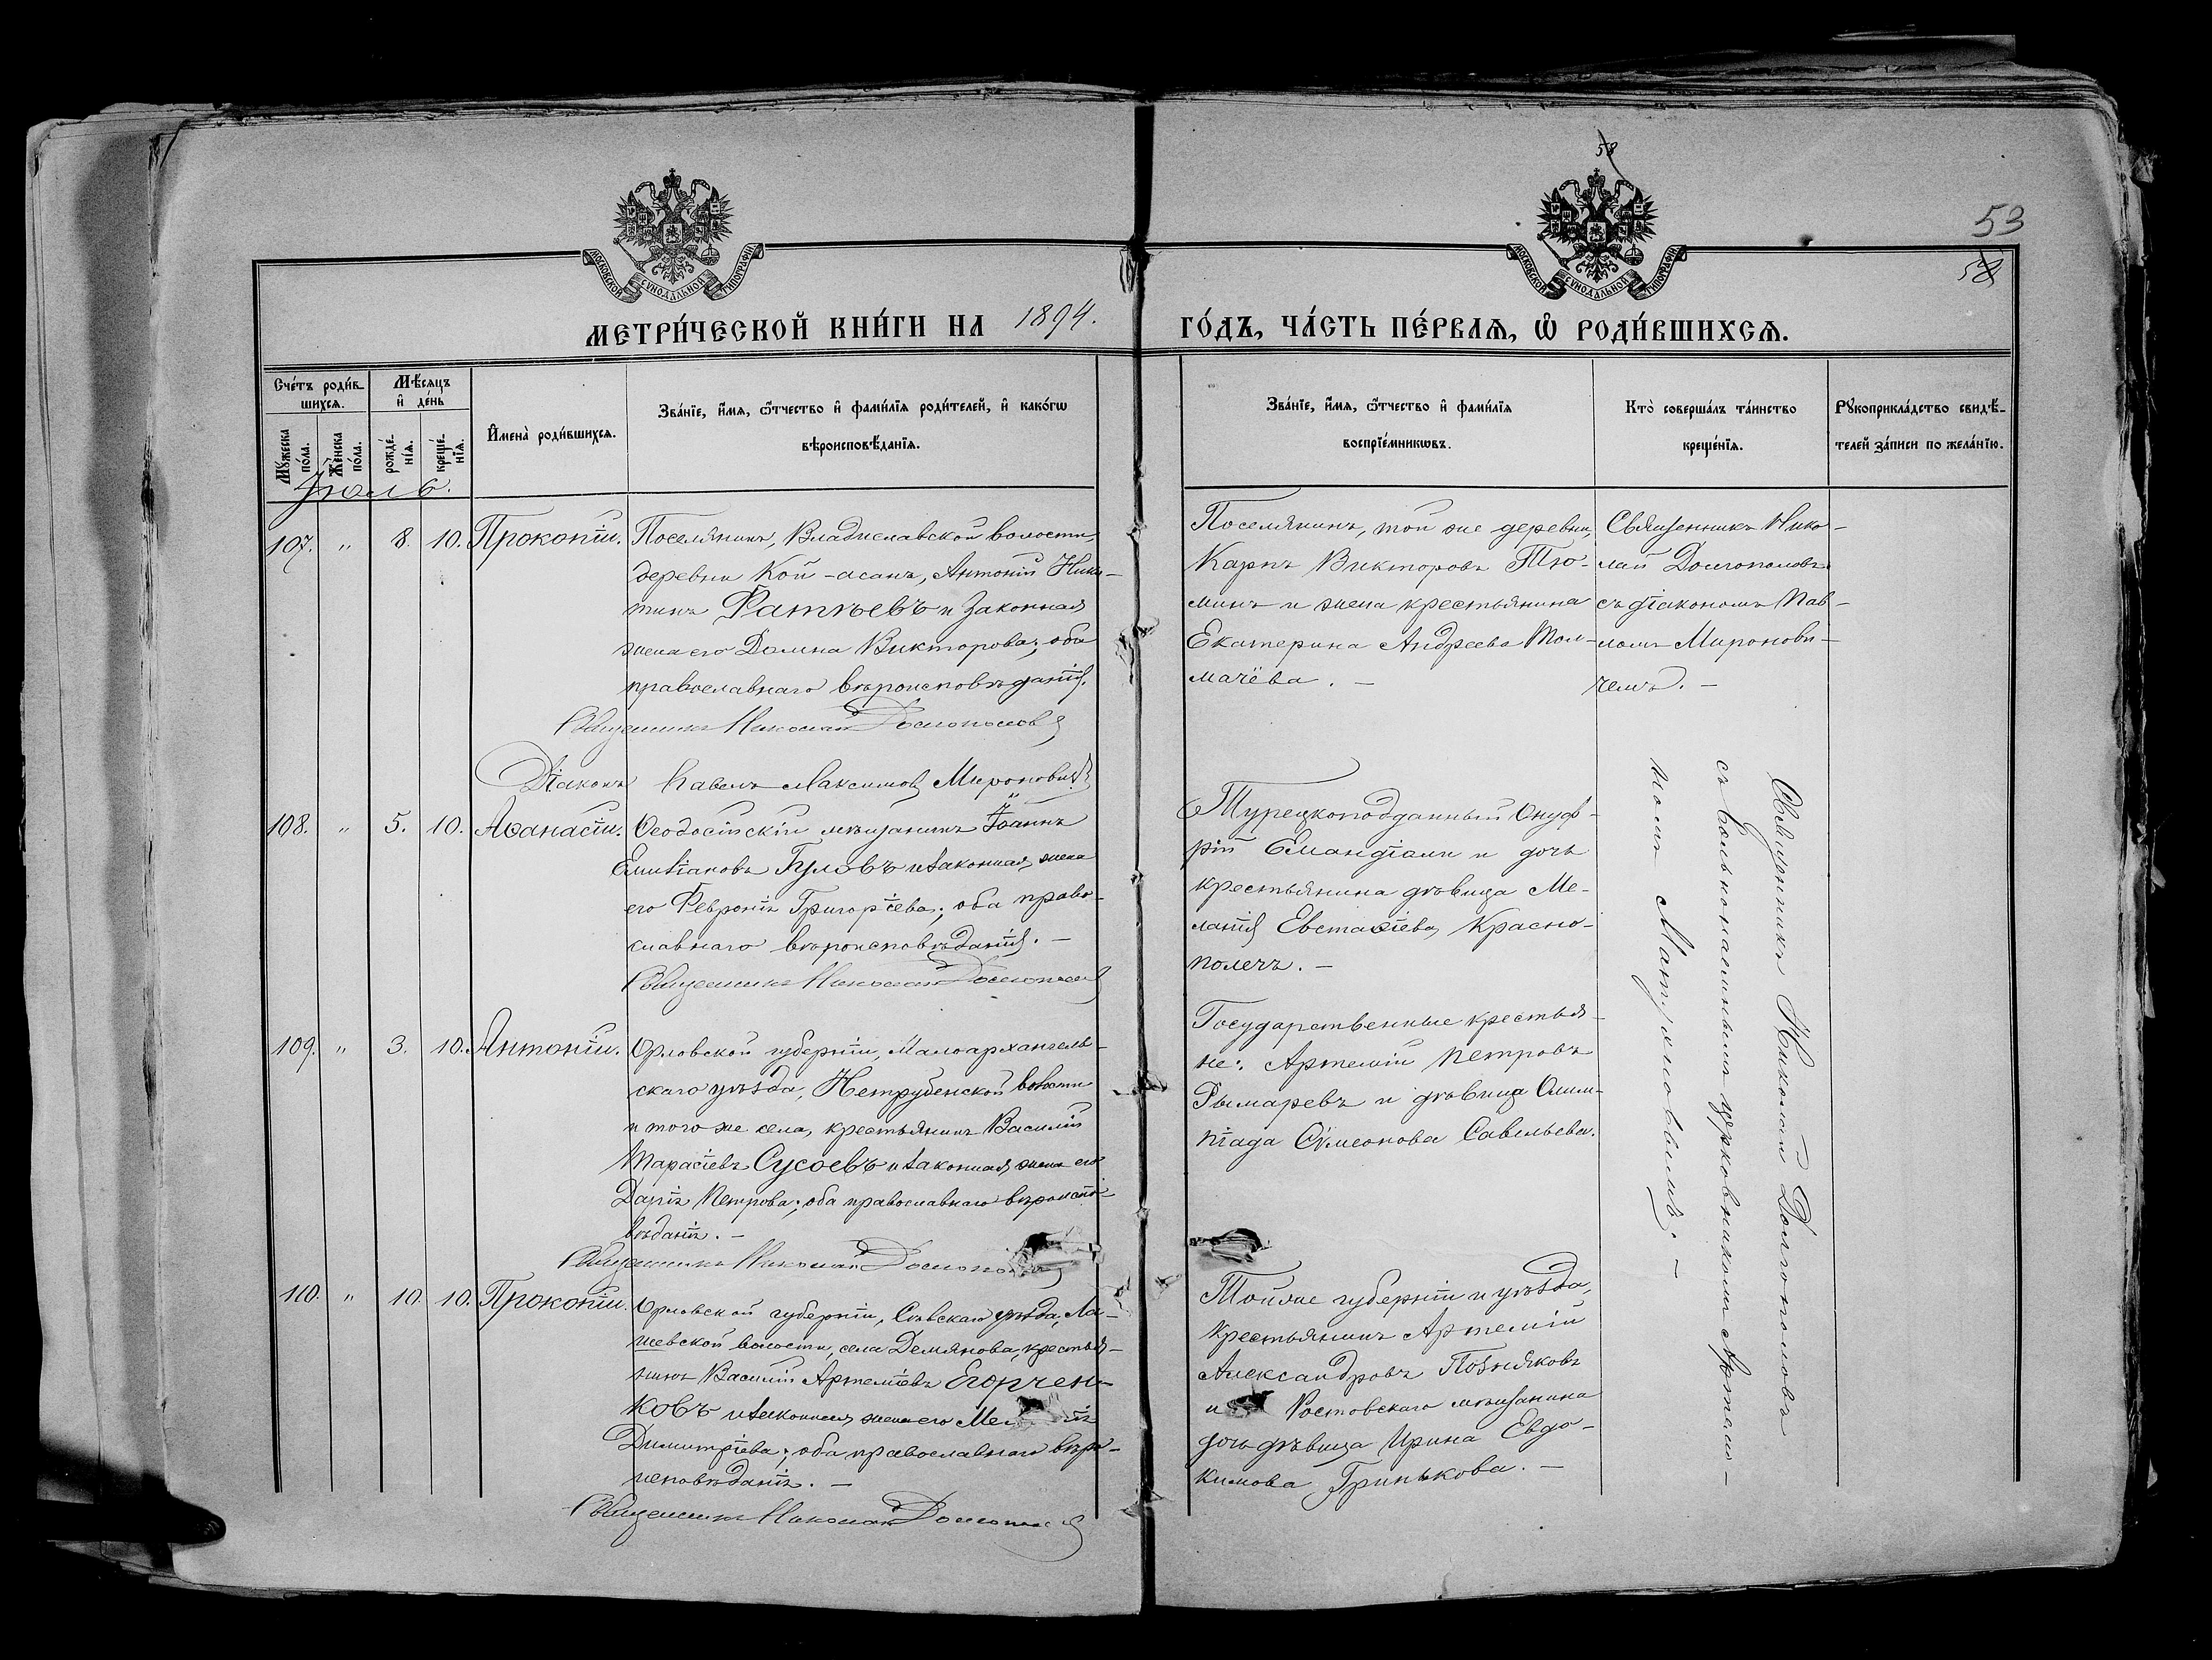 58
53
58
МОСКОВСКОЙ СѴНОДАЛЬНОЙ ТИПОГРАФІИ
МОСКОВСКОЙ СѴНОДАЛЬНОЙ ТИПОГРАФІИ
МЕТРИ́ЧЕСКОЙ КНИ́ГИ НА 1894.
ГО́ДЪ, ЧА́СТЬ ПЕ́РВАѦ, Ѡ҆ РОДИ́ВШИХСѦ.
Сче́тъ роди́в-
шихсѧ.
Мꙋ́жеска по́ла.
Же́нска по́ла.
Мѣ́сѧцъ
и҆ де́нь
рожде́-
нїѧ.
креще́-
нїѧ.
И҆мена̀ роди́вшихсѧ.
Зва́нїе, и҆́мѧ, ѻ҆́тчество и҆ фами́лїѧ роди́телей, и҆ како́гѡ
вѣроисповѣ́данїѧ.
Зва́нїе, и҆́мѧ, ѻ҆́тчество и҆ фами́лїѧ
воспрїе́мникѡвъ.
Кто̀ соверша́лъ та́инство
креще́нїѧ.
Рꙋкоприкла́дство свидѣ́-
телей за́писи по жела́нїю.
Іюль.
107. " 8. 10. Прокопій.
Поселянинъ, Владиславской волости
деревни Кой-асанъ, Антоній Ники-
тинъ Фатѣевъ и законная
жена его Домна Викторова; оба
православнаго вѣроисповѣданія.
Священникъ Николай Долгополовъ
Діаконъ Павелъ Максимовъ Мироновичъ
Поселянинъ, той же деревни,
Карпъ Викторовъ Тю-
минъ и жена крестьянина
Екатерина Андреева Тол-
мачёва. –
Священникъ Нико-
лай Долгополовъ
съ діакономъ Пав-
ломъ Миронови-
чемъ. –
108. " 5. 10. Аѳанасій.
Ѳеодосійскій мѣщанинъ Іоаннъ
Емиліановъ Гуловъ и законная жена
его Февронія Григоріева; оба право-
славнаго вѣроисповѣданія. –
Священникъ Николай Долгополовъ
Турецкоподданный Онуф-
рій Еманділи и дочь
крестьянина дѣвица Ме-
ланія Евстаѳіева Красно-
полечъ. –
Священникъ Николай Долгополовъ
съ вольнонаемнымъ церковникомъ Артемі-
109. " 3. 10. Антоній.
Орловской губерніи, Малоархангель-
скаго уѣзда, Нетрубенской волости
и того же села, крестьянинъ Василій
Тарасіевъ Сусоевъ и законная жена его
Дарія Петрова; оба православнаго вѣроиспо-
вѣданія. –
Священникъ Николай Долгополовъ
Государственные крестья-
не: Артемій Петровъ
Рымаревъ и дѣвица Олим-
піада Сѵмеонова Савельева.
110. " 10. 10. Прокопій.
Орловской губерніи, Сѣвскаго уѣзда, Ла-
шевской волости, села Демянова, крестья-
нинъ Василій Артеміевъ Егорчен-
ковъ и законная жена его
Димитріева; оба православнаго вѣро-
исповѣданія. –
Священникъ Николай Долгополовъ
Той же губерніи и уѣзда,
крестьянинъ Артемій
Александровъ Позняковъ
и Ростовскаго мѣщанина
дочь дѣвица Ирина Евдо-
кимова Гринькова. –